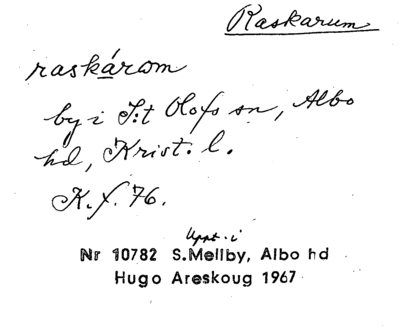 Raskarum
raskárom
by i S:t Olofs sn, Albo
hd, Krist. l.
K.f. 76.
Uppt. i
Nr 10782 S.Mellby, Albo hd
Hugo Areskoug 1967